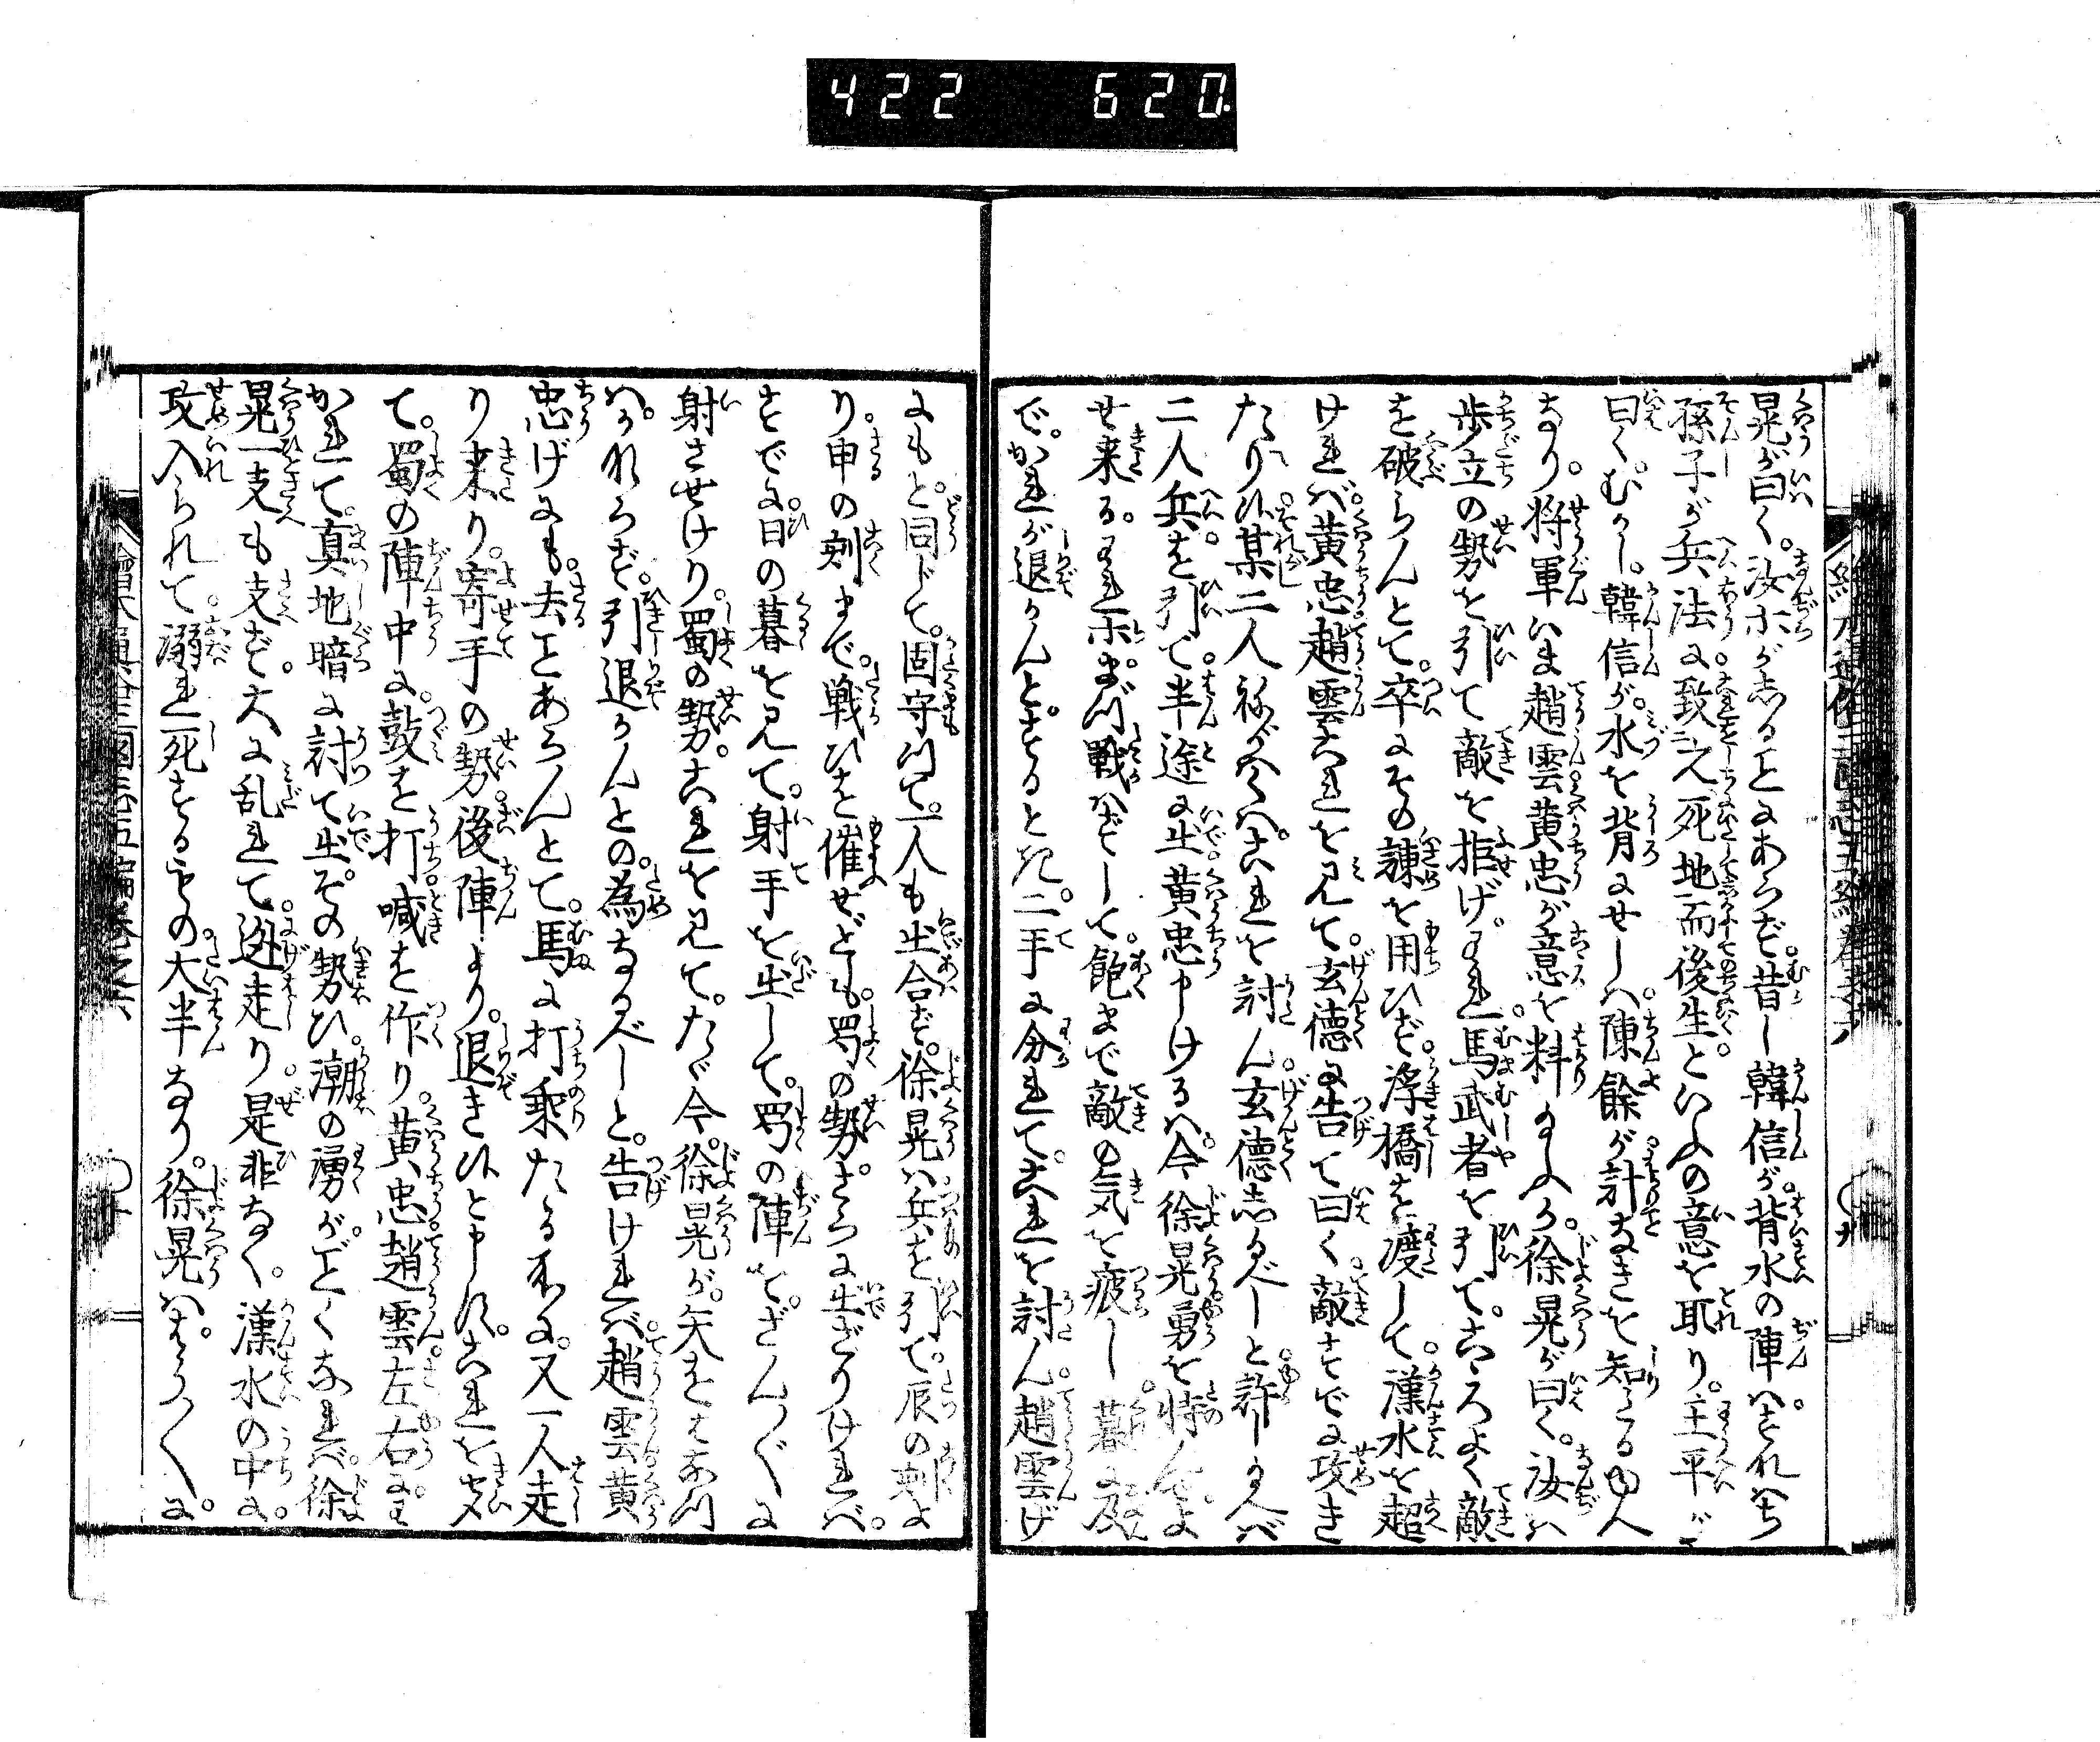 422 620
晃が曰く。汝ホがしることにあらず。昔し韓信が。背水の陣は。それハち
孫子が兵法に。致之死地而後生。といふの意を取り。王平が
曰く。むかし。韓信が。水を背にせしハ。陳餘が計なきを知こるゆへ
なり。将軍いま趙雲黄忠が意を料り玉ふか。徐晃が曰く。汝ハ
歩立の勢を引て敵を拒げ。われ馬武者を引て。こゝろよく敵
を破らんとて。卒にその諫を用ひず。浮橋を渡して。漢水を超
けれバ。黄忠趙雲これを見て。玄徳に告て曰く。敵すでに攻き
たり候。某二人ねがハくハ。これを討ん。玄徳しかるべしと許し玉へバ
二人兵を引て。半途に出。黄忠申けるハ。今徐晃勇を恃んで。よ
せ来る。われホまづ戦ハずして。飽まで敵の気を疲し。暮に及ん
で。かれが退かんと。するとき。二手に分れて。これを討ん。趙雲げ
にもと。同じて。固守つて。一人も出合ず。徐晃ハ兵を引て。辰の刻よ
り。申の刻まで。戦ひを催せども。蜀の勢。さらに出ざりけれバ。
すでに。日の暮を見て。射手を出して。蜀の陣を。ざんざんに
射させけり。蜀の勢。これを見て。たゞ今。徐晃が。矢をはなつ
ハ。かならず。引退かんとの。為なるべしと。告けれバ。趙雲黄
忠げにも。去ことあらんとて。馬に打乗たる所に。又一人走
り来り。寄手の勢。後陣より。退き候と申す。これを聞
て。蜀の陣中に。鼓を打。喊を作り。黄忠趙雲。左右にわ
かれて。真地暗に討て出。その勢ひ。潮の湧がごとくなれバ。徐
晃一支も支ず。大に乱れて。逃走り。是非なく。漢水の中に。
攻入られて。溺れ死するもの。大半なり。徐晃ハ。はう〱に。